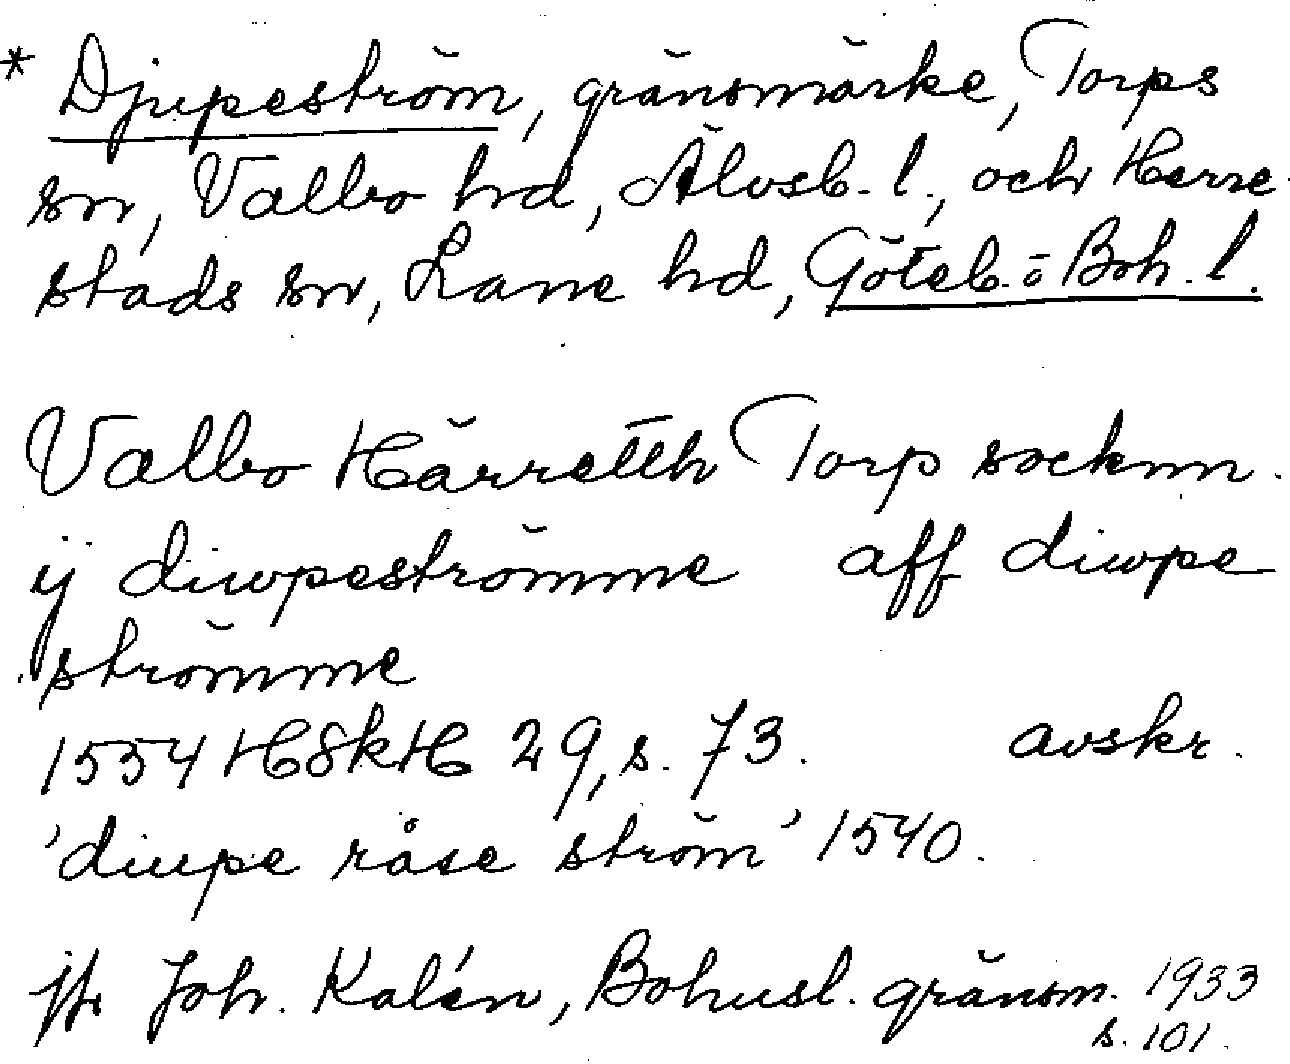 * Djupeström, gränsmärke, Torps
sn, Valbo hd, Älvsb. l., och Herre-
stads sn, Lane hd, Göteb. o Boh. l.
Valbo Härretth Torp socknn.
ÿ diwpeströmme aff diwpe
strömme
1554 HSkH 29, s. 73. avskr.
'diupe råse ström' 1540.
jfr Joh. Kalén, Bohusl. gränsm. 1933
s. 101.